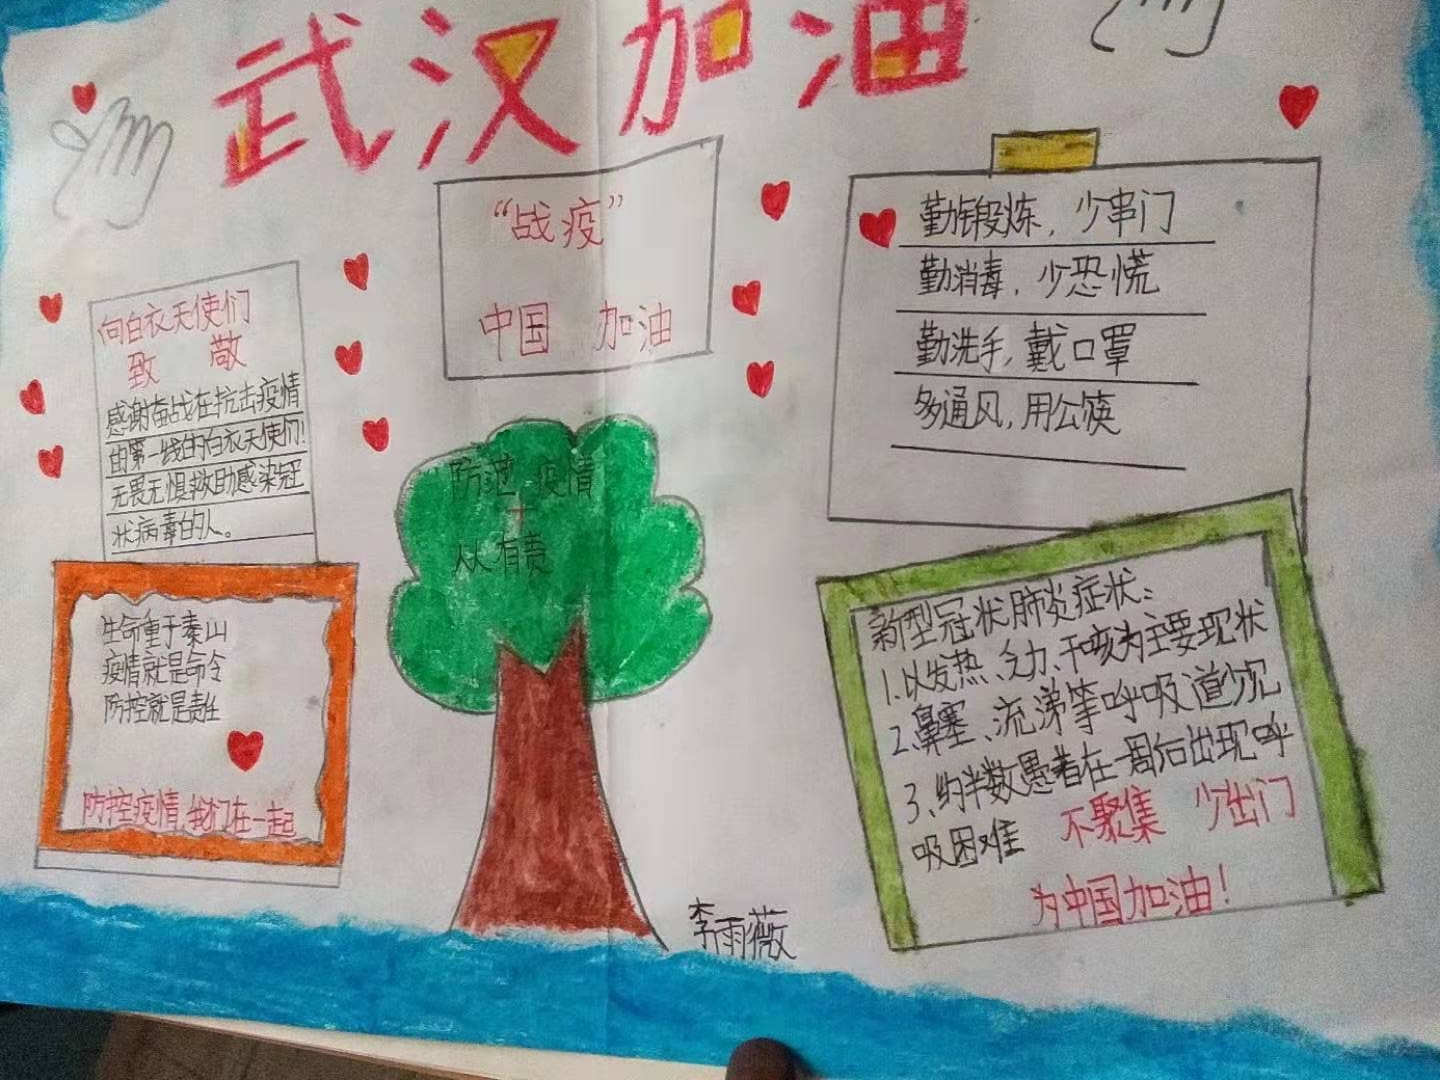 武汉加油
“战疫”
中国 加油
勤锻炼，少串门
勤消毒，少恐慌
勤洗手，戴口罩
多通风，用公筷
向白衣天使们
致 敬
感谢奋战在抗击疫情
由第一线的白衣天使们！
无畏无惧救助感染冠
状病毒的人。
防范 疫情
从 有责
生命重于泰山
疫情就是命令
防控就是责任
防控疫情，我们在一起
新型冠状肺炎症状：
1.以发热、乏力、干咳为主要现状
2、鼻塞、流涕等呼吸道少见
3、约半数患者在一周后出现呼
吸困难 不聚集 少出门
为中国加油！
李雨薇